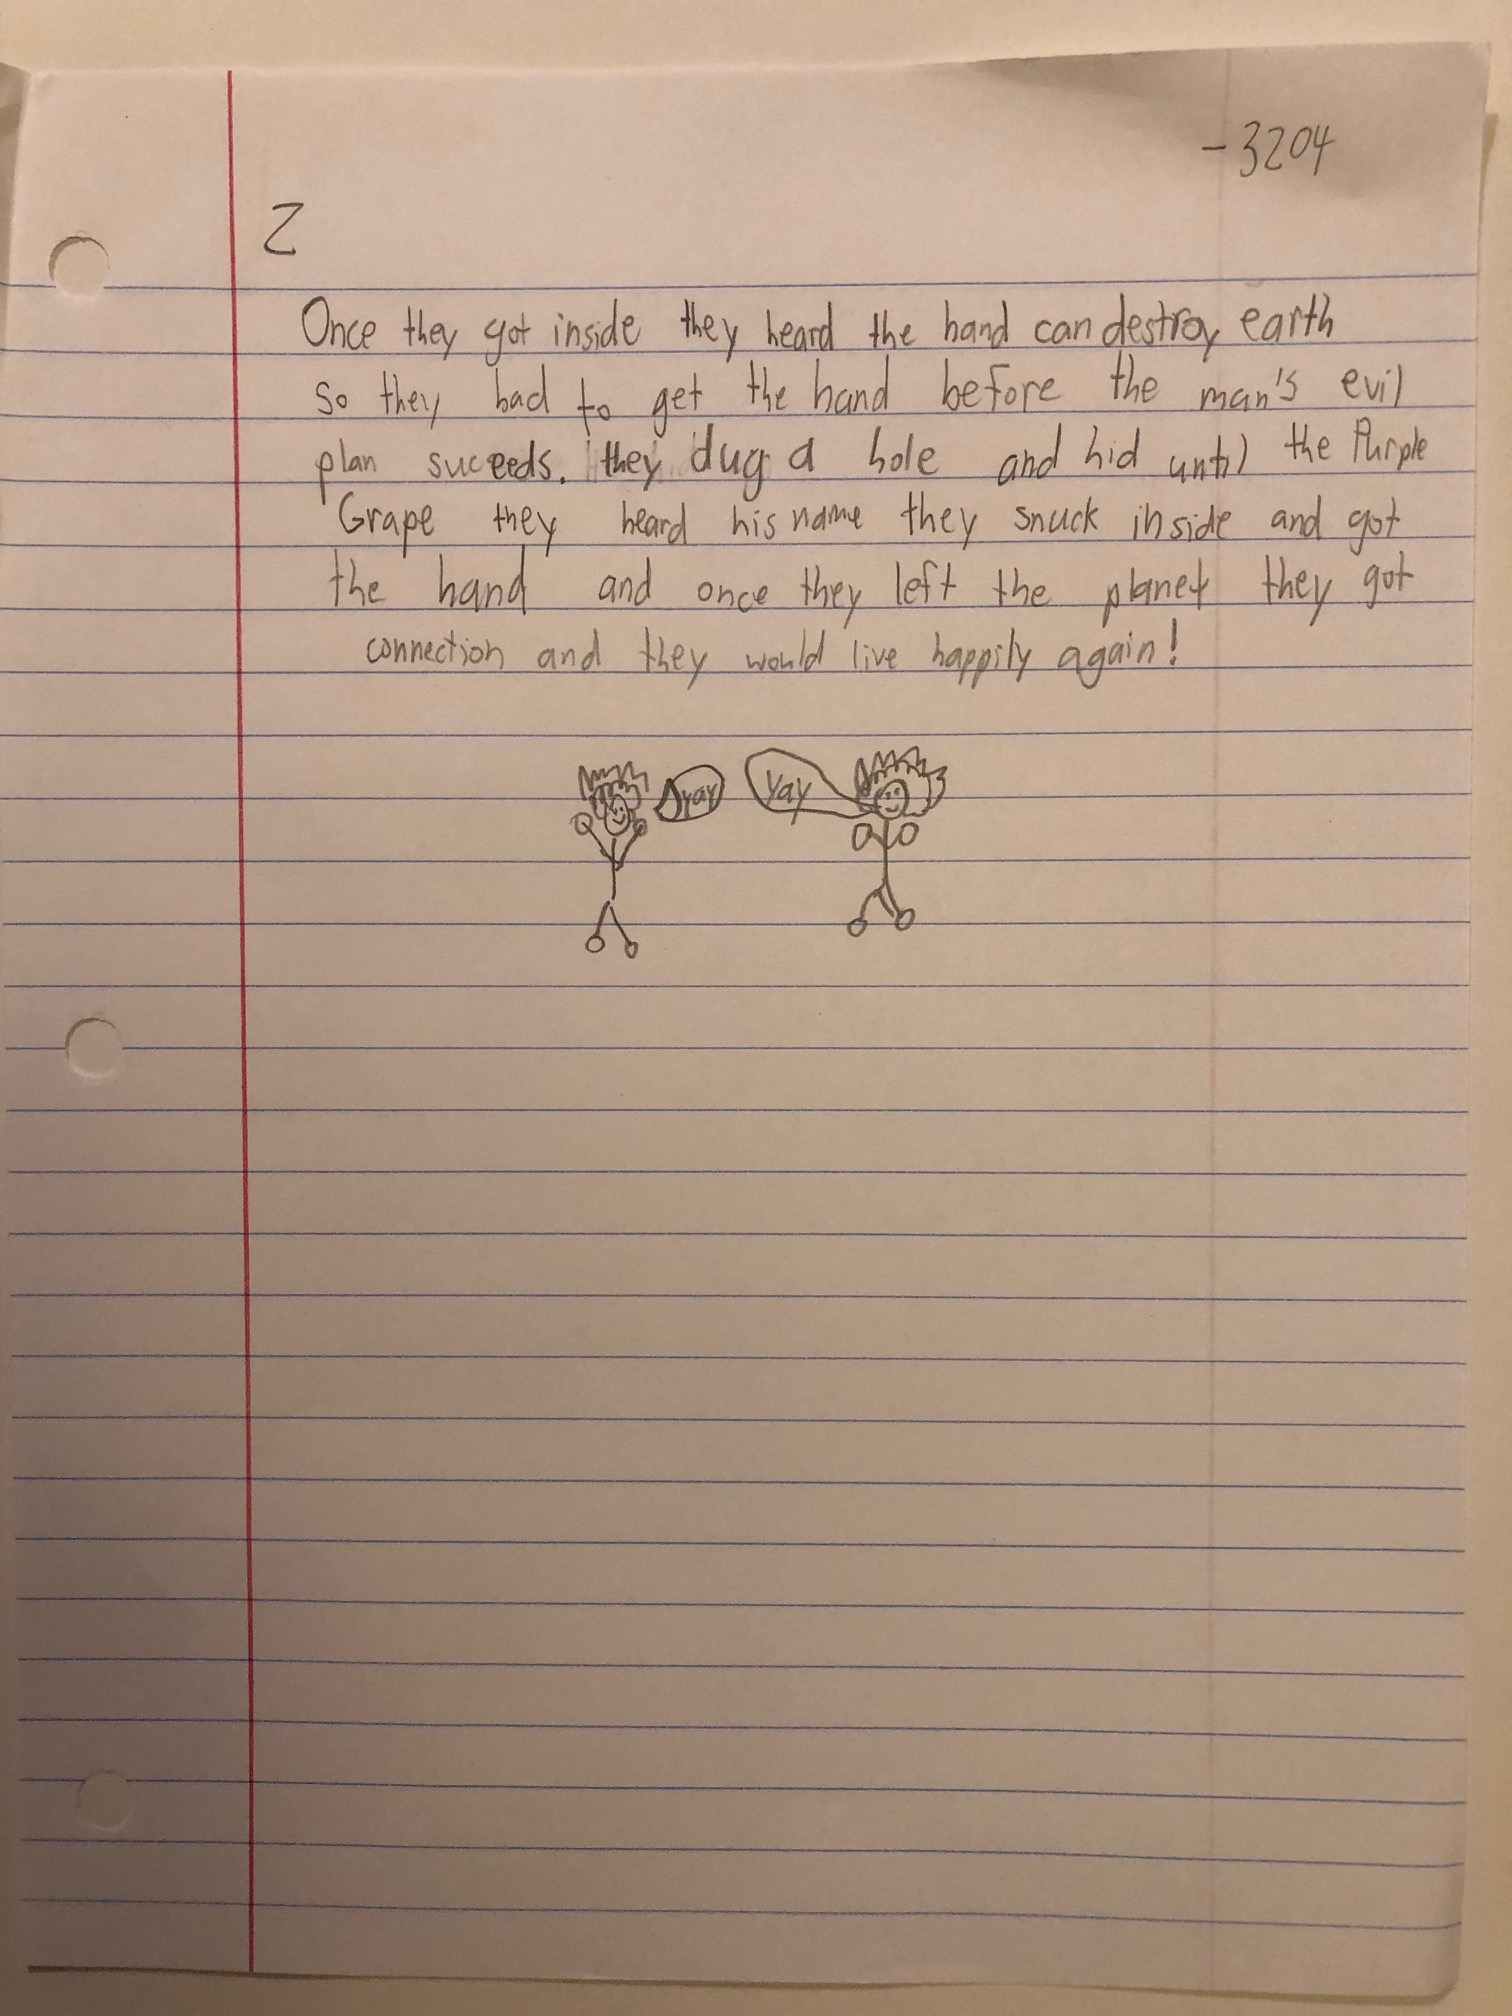 -3204
2
Once they got inside they heard the hand can destroy earth
so they had to get the hand before the man's evil
plan suceeds. they dug a hole and hid until the Purple
Grape they heard his name they snuck inside and got
the hand and once they left the planet they got
connection and they would live happily again!
yay Yay